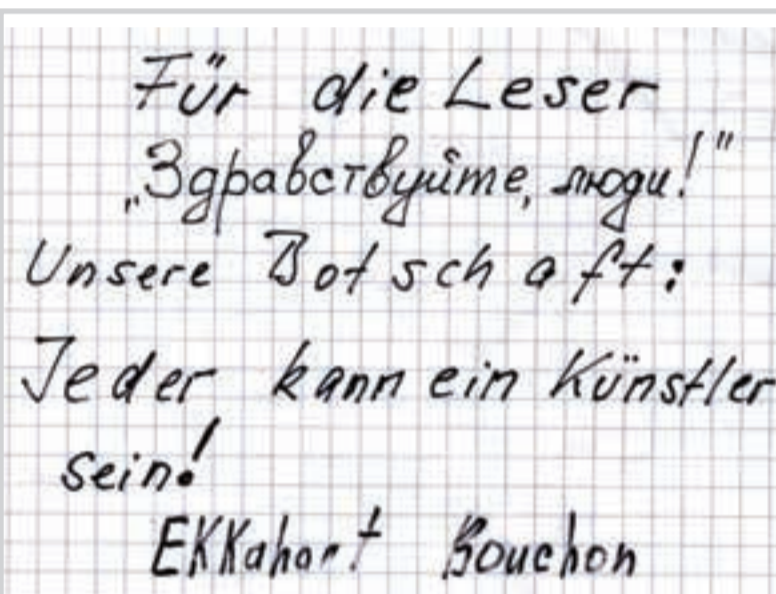 Für die Leser
„Здравствуйте, люди!"
Unsere Botschaft:
Jeder kann ein Künstler
sein!
Ekkahart Bouchon